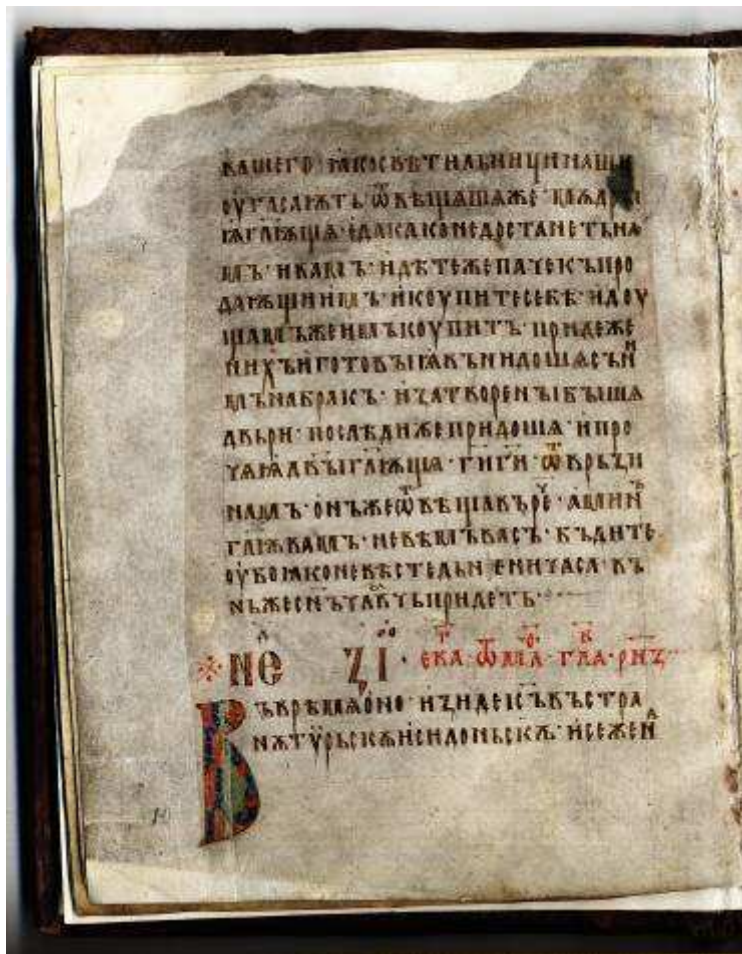 вашего ꙗко свѣтильници наши
оугасаѭтъ ѿвѣщашѧ же мѫдрꙑ
ѩ гл҃ѭщѧ · еда како не достанетъ на
мъ · и вамъ · идѣте же паче къ про
даѭщиимъ · и коупите себѣ · идоу
щамъ же имъ коупитъ · приде же
нихъ и готовыѩ вънидошѧ съ ни
мъ на бракъ · и затворены бышѧ
двьри · послѣди же придошѧ · и про
чѧѩ дв҃ы гл҃ѭщѧ · г҃и г҃и ѿврьзи
намъ · онъ же ѿвѣща въ рⷱ҇е · амин
гл҃ѭ вамъ · не вѣмъ васъ · бъдите
оубо ꙗко не вѣсте дьни ни часа · въ
ньже сн҃ъ чл҃вчь придетъ ·
не зі · еваⷢ҇ · ѿ маⷴ · гла · рнз
Въ врѣмѧ оно · изиде іс҃ъ въ стра
нѫ тѵрьскѫ и сидоньскѫ · и се жена